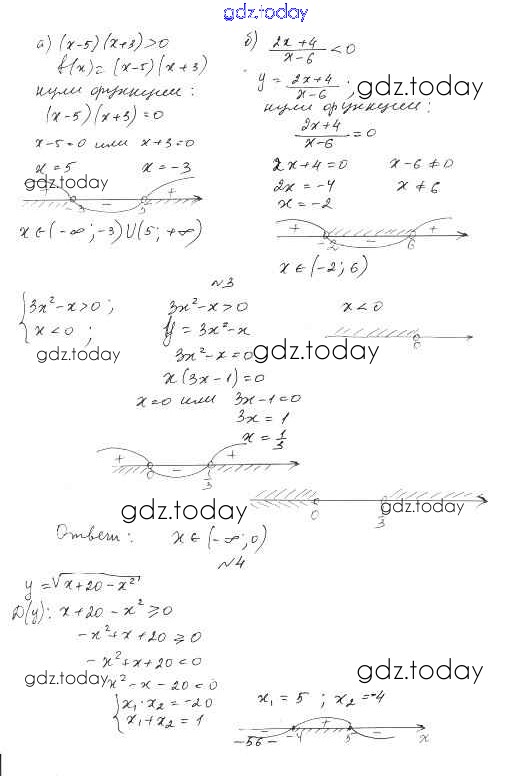 gdz.today
а) (x-5)(x+3)>0
f(x)=(x-5)(x+3)
нули функции:
(x-5)(x+3)=0
x-5=0 или x+3=0
x=5 x=-3
gdz.today
+ - +
-3 5
x∈(-∞;-3)∪(5;+∞)
б) \frac{2x+4}{x-6}<0
y=\frac{2x+4}{x-6};
gdz.today
нули функции:
\frac{2x+4}{x-6}=0
2x+4=0 x-6≠0
2x=-4 x≠6
x=-2
+ - +
-2 6
x∈(-2;6)
№3
{3x²-x>0; 3x²-x>0 x<0
x<0; y=3x²-x
gdz.today
0
3x²-x=0
gdz.today
x(3x-1)=0
x=0 или 3x-1=0
3x=1
x=\frac{1}{3}
+ - +
0 \frac{1}{3}
0 \frac{1}{3}
gdz.today
gdz.today
Ответ: x∈(-∞;0)
№4
y=√x+20-x²
D(y): x+20-x²≥0
-x²+x+20≥0
-x²+x+20=0
gdz.today
x²-x-20=0
gdz.today
{x₁·x₂=-20
x₁+x₂=1
x₁=5; x₂=-4
- + -
-4 5 x
-56-